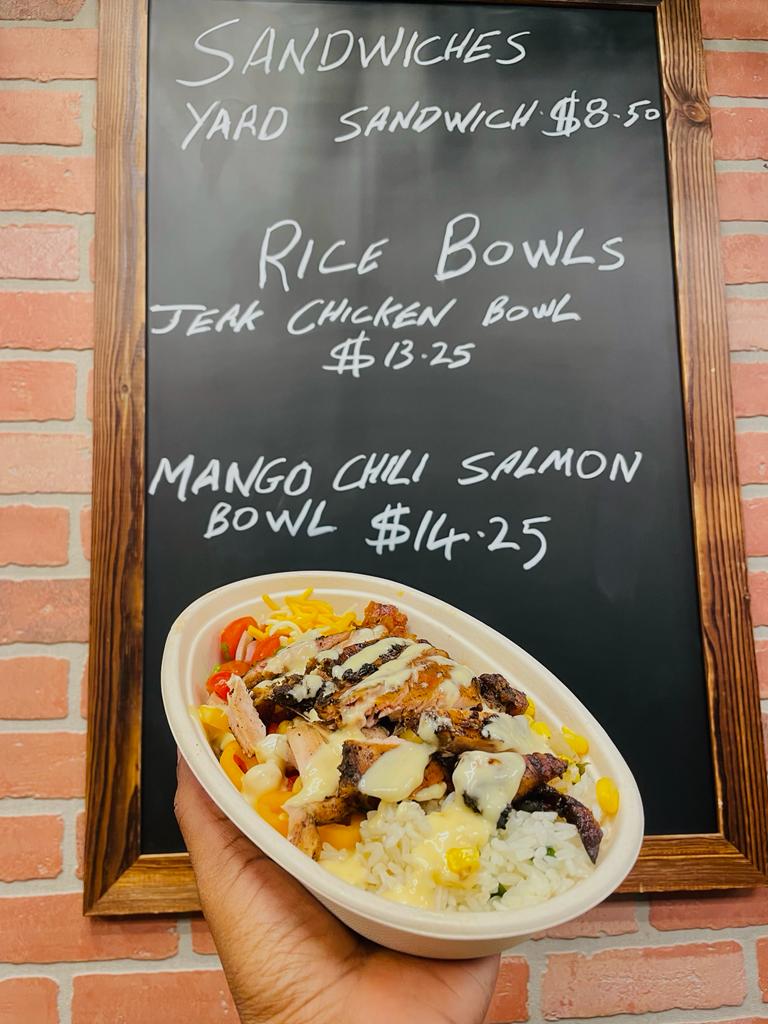 SANDWICHES
YARD SANDWICH $8.50
RICE BOWLS
JERK CHICKEN BOWL
$13.25
MANGO CHILI SALMON
BOWL $14.25